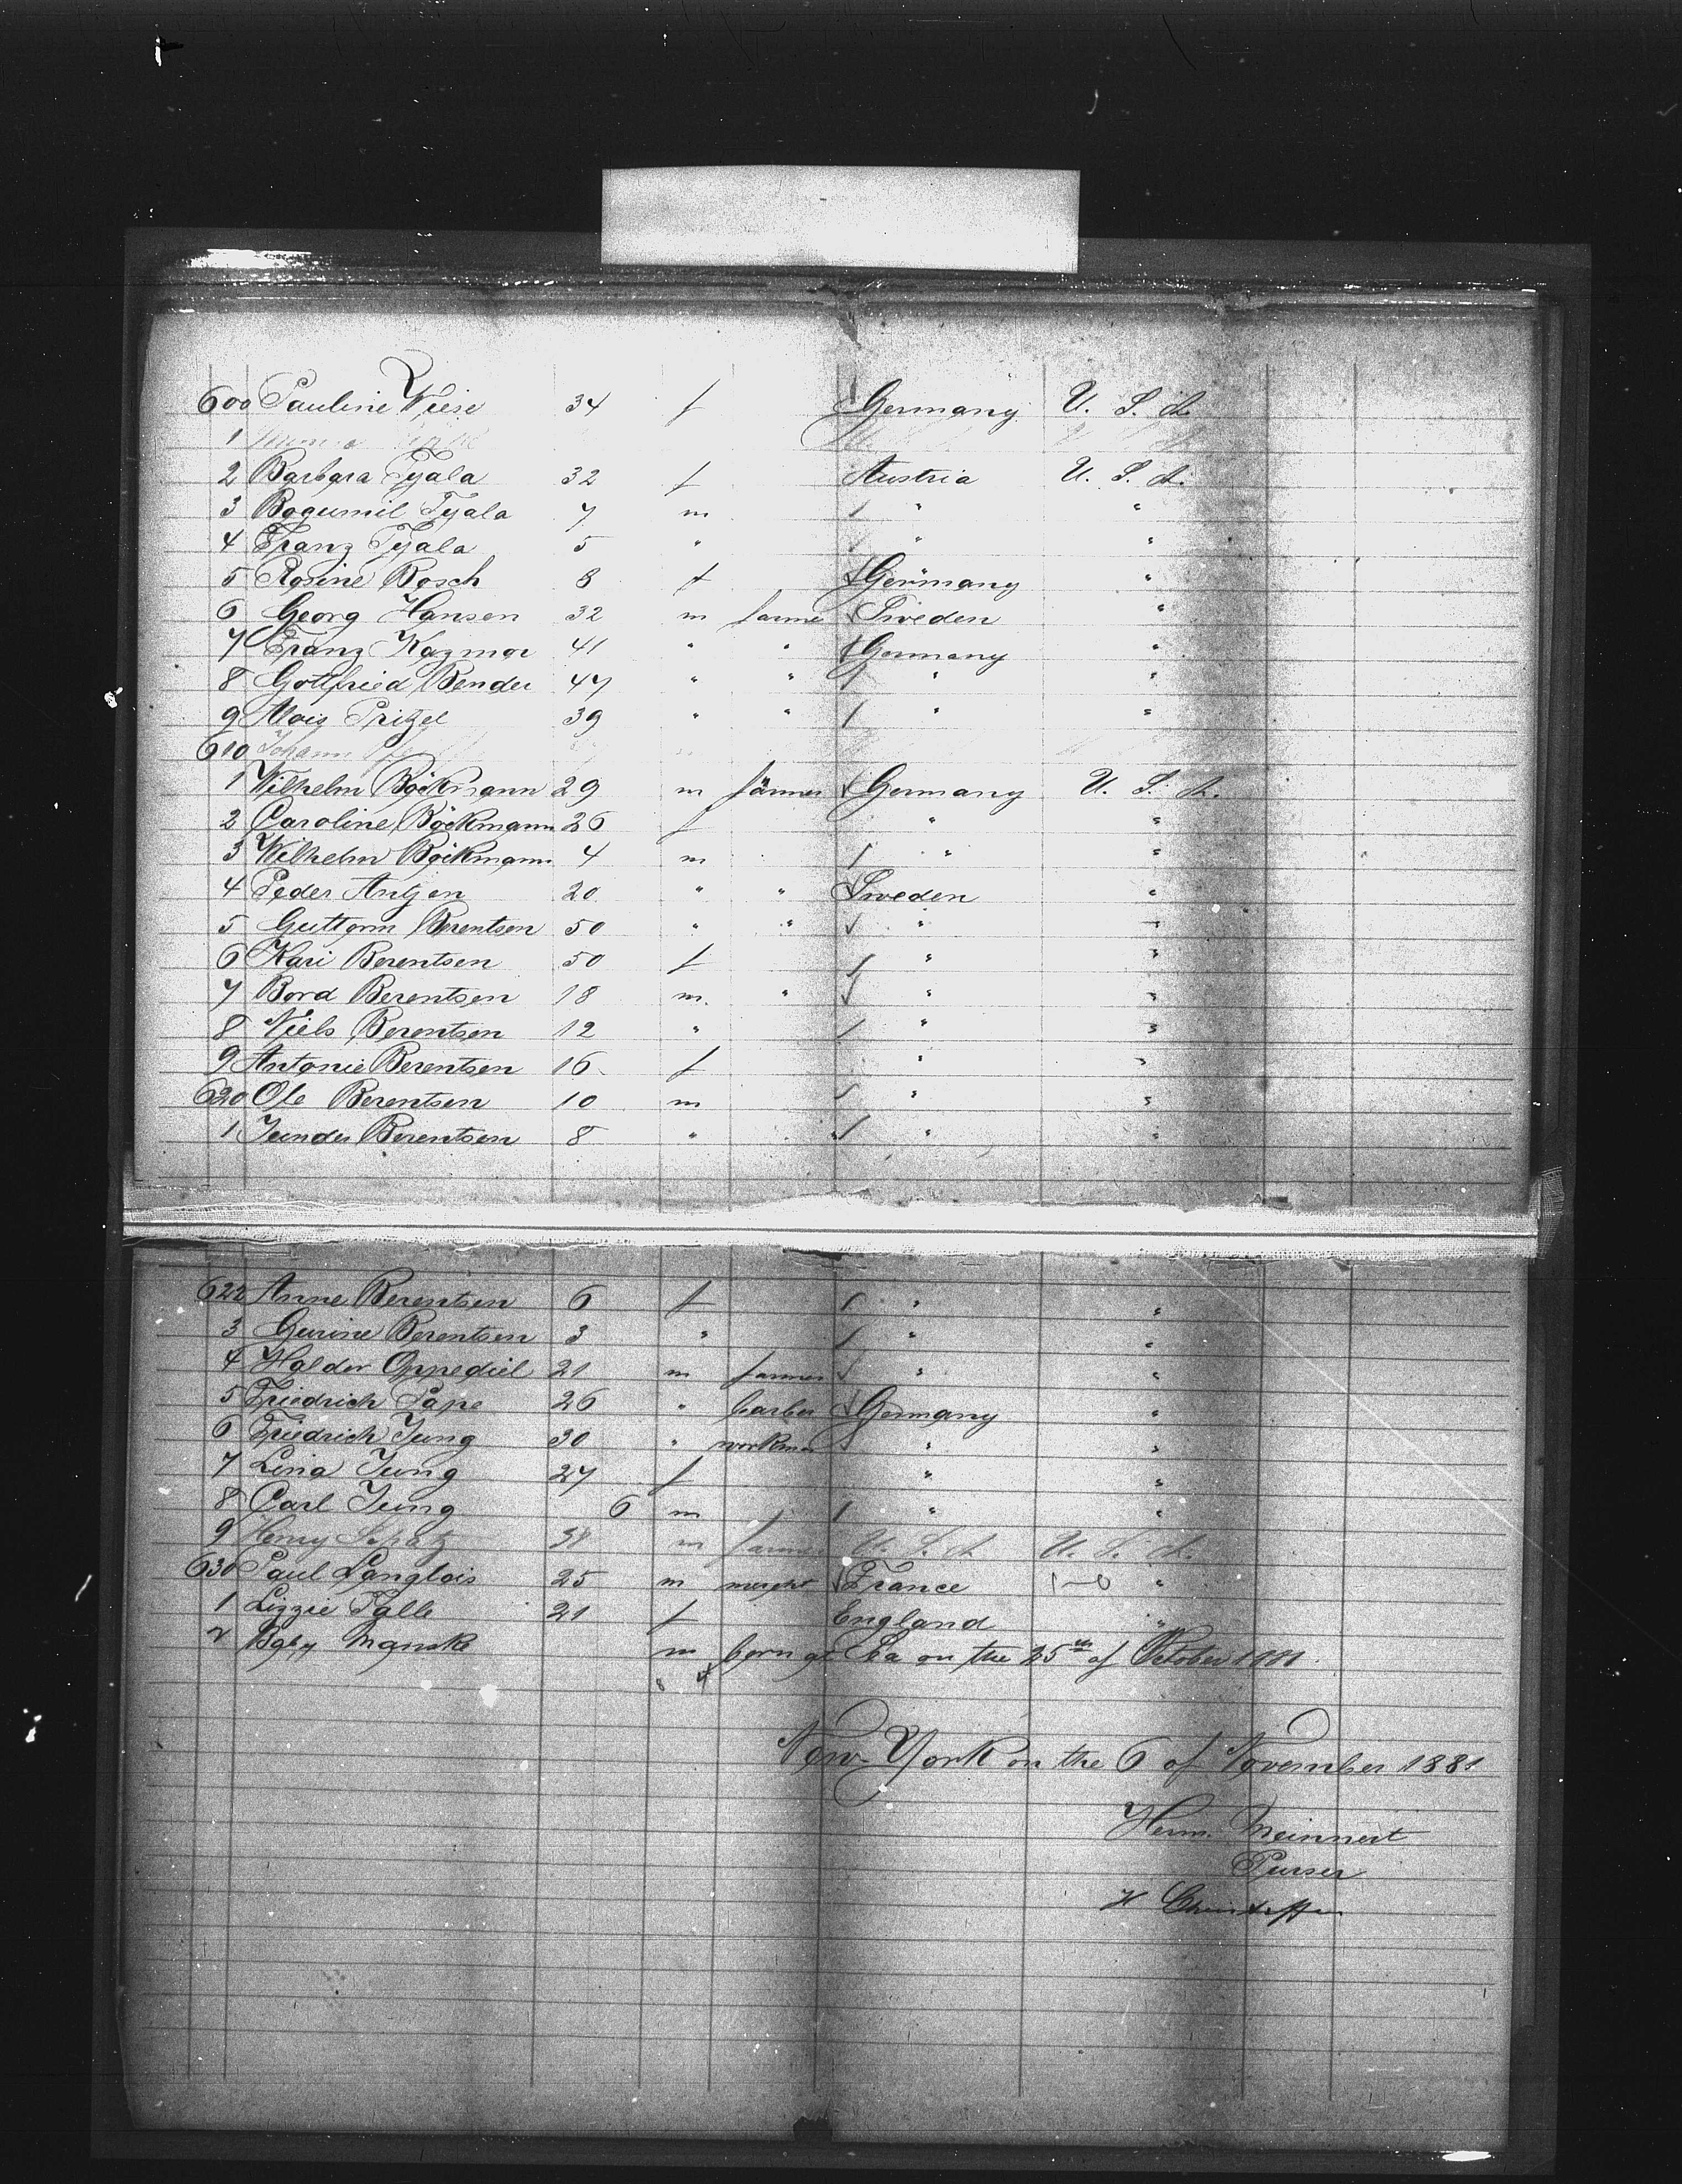 600 Pauline Wiese 34 f Germany U. S. A.
1
2 Barbara Tyala 32 f Austria U. S. A.
3 Bogumil Tyala 7 m " "
4 Franz Tyala 5 " " "
5 Rosine Bosch 8 f Germany "
6 Georg Hansen 32 m farmer Sweden "
7 Franz Kazmor 41 " " Germany "
8 Gottfried Bender 47 " " " "
9 Alois Pritzel 39 " " " "
610 Johann
1 Wilhelm Böckmann 29 m farmer Germany U. S. A.
2 Caroline Böckmann 26 f " "
3 Wilhelm Böckmann 4 m " "
4 Peder Antjen 20 " " Sweden "
5 Guttorm Berentsen 50 " " " "
6 Kari Berentsen 50 f " "
7 Bord Berentsen 18 m. " " "
8 Niels Berentsen 12 " " "
9 Antonie Berentsen 16 f " "
620 Ole Berentsen 10 m " "
1 Berentsen 8 " " "
622 Anne Berentsen 6 f " "
3 Gurine Berentsen 3 " " "
4 Haldor 21 m farmer " "
5 Friedrich Pape 26 " barber Germany "
6 Friedrich Jung 30 " workman " "
7 Lina Jung 27 f " "
8 Carl Jung 6 m " "
9 Henry 34 m farmer U. S. A U. S. A.
630 Paul Langlois 25 m mercht France "
1 Lizzie 21 f England "
2 Baby Manske m born at Sea on the 25th of October 1881
New-York on the 6 of November 1881
Herm. Meinnert
Purser
H